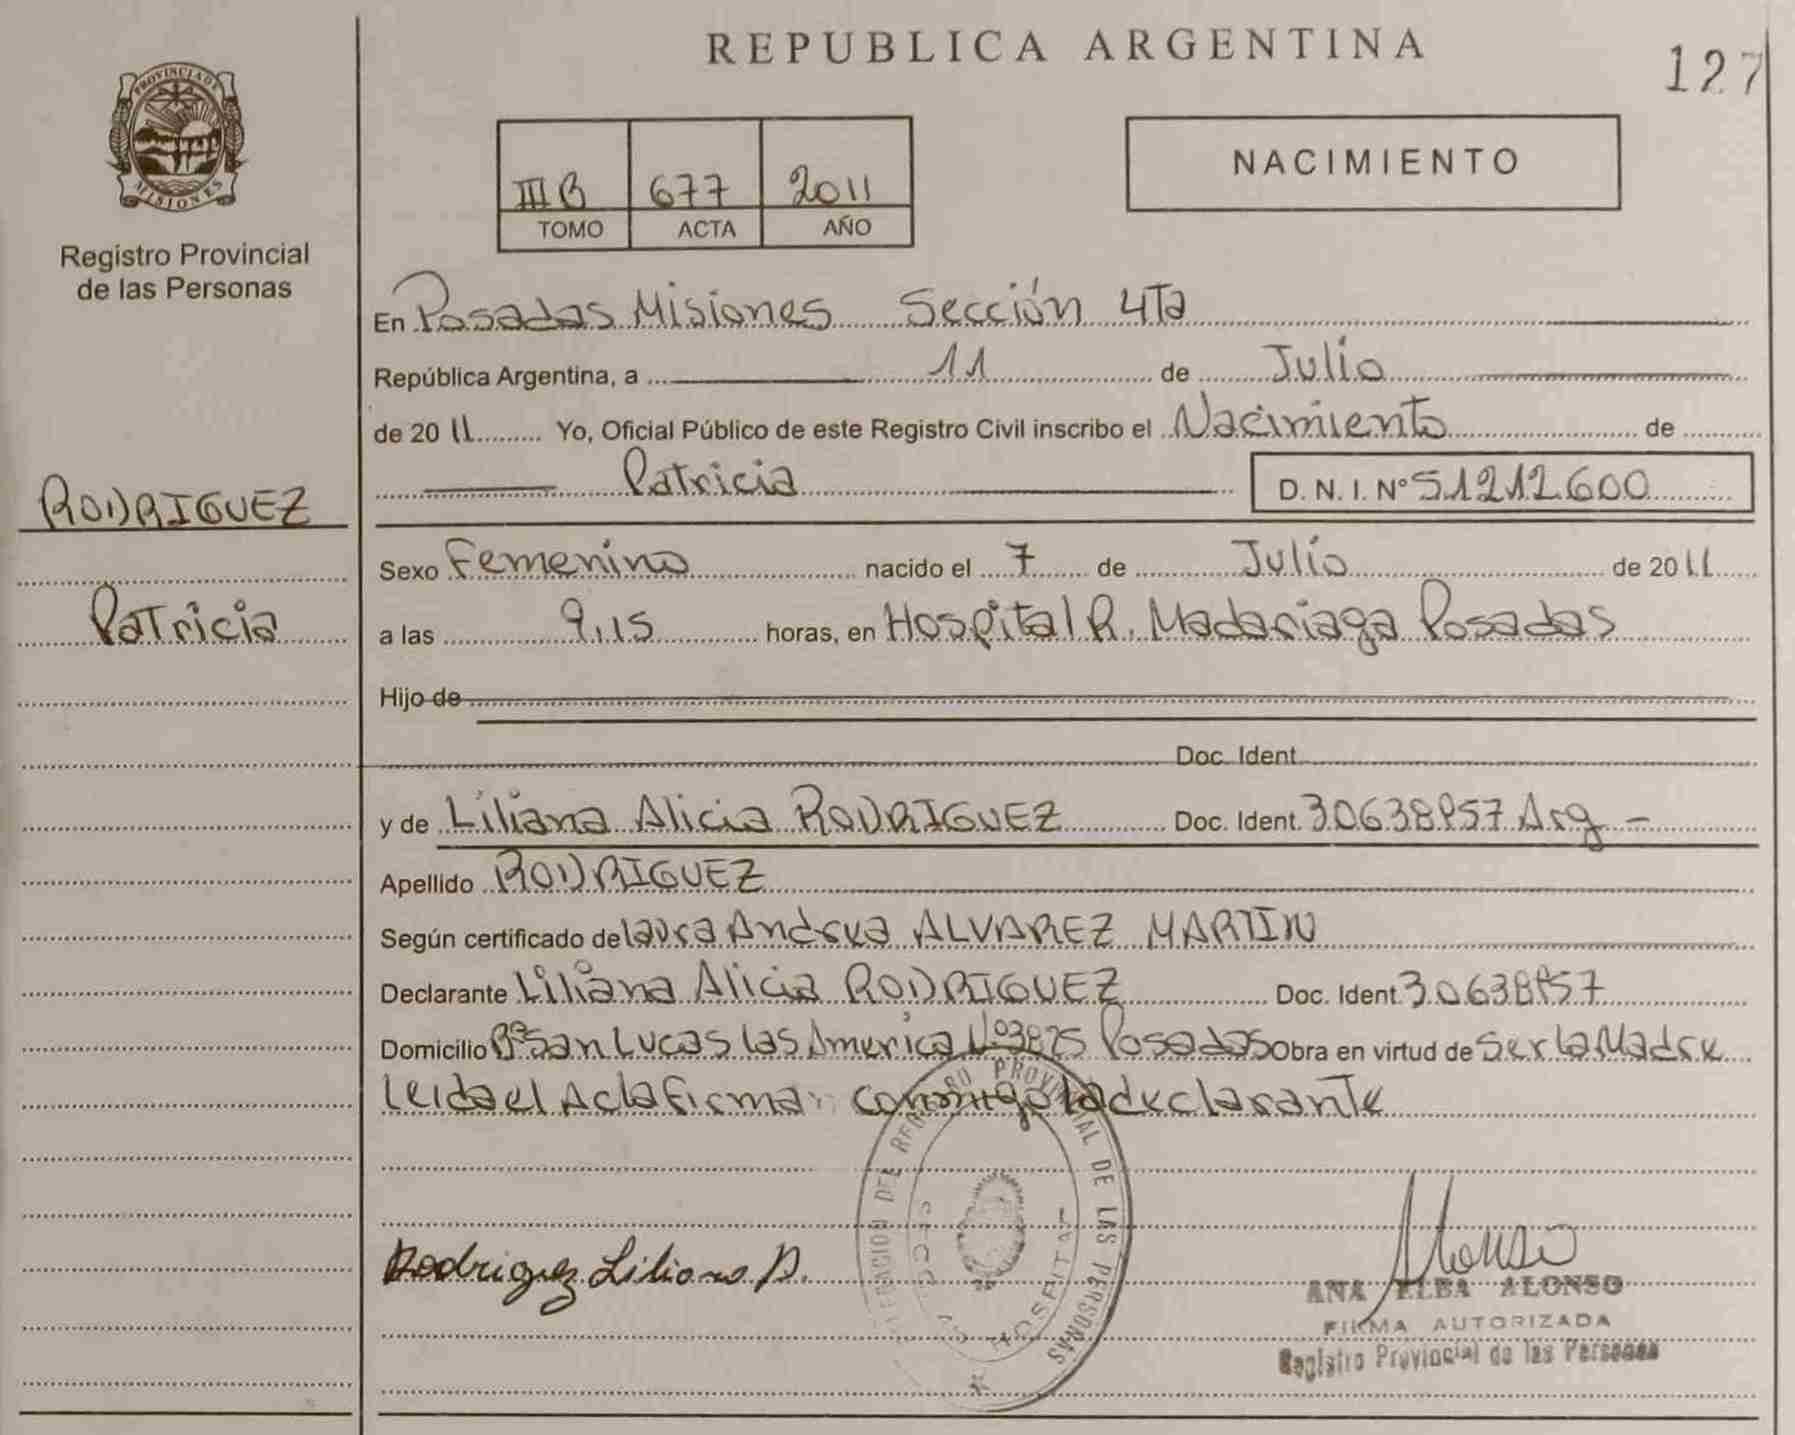 REPUBLICA ARGENTINA
127
PROVINCIA DE MISIONES
Registro Provincial
de las Personas
III B 677 2011
TOMO ACTA AÑO
NACIMIENTO
En Posadas Misiones Sección 4Ta
República Argentina, a 11 de Julio
de 2011 Yo, Oficial Público de este Registro Civil inscribo el Nacimiento de
Patricia D. N. I. Nº 51212600
RODRIGUEZ
Patricia
Sexo Femenino nacido el 7 de Julio de 2011
a las 9,15 horas, en Hospital R. Madariaga Posadas
Hijo de
Doc. Ident.
y de Liliana Alicia RODRIGUEZ Doc. Ident. 30638957 Arg -
Apellido RODRIGUEZ
Según certificado de laura Andrea ALVAREZ MARTIN
Declarante Liliana Alicia RODRIGUEZ Doc. Ident. 30638957
Domicilio Bº San Lucas las America Nº 3825 Posadas Obra en virtud de Ser la Madre
Leida el Acta firma conmigo la declarante
DELEGACION DEL REGISTRO PROVINCIAL DE LAS PERSONAS
HOSPITAL
Rodriguez Liliana A.
Alonso
ANA ELBA ALONSO
FIRMA AUTORIZADA
Registro Provincial de las Personas